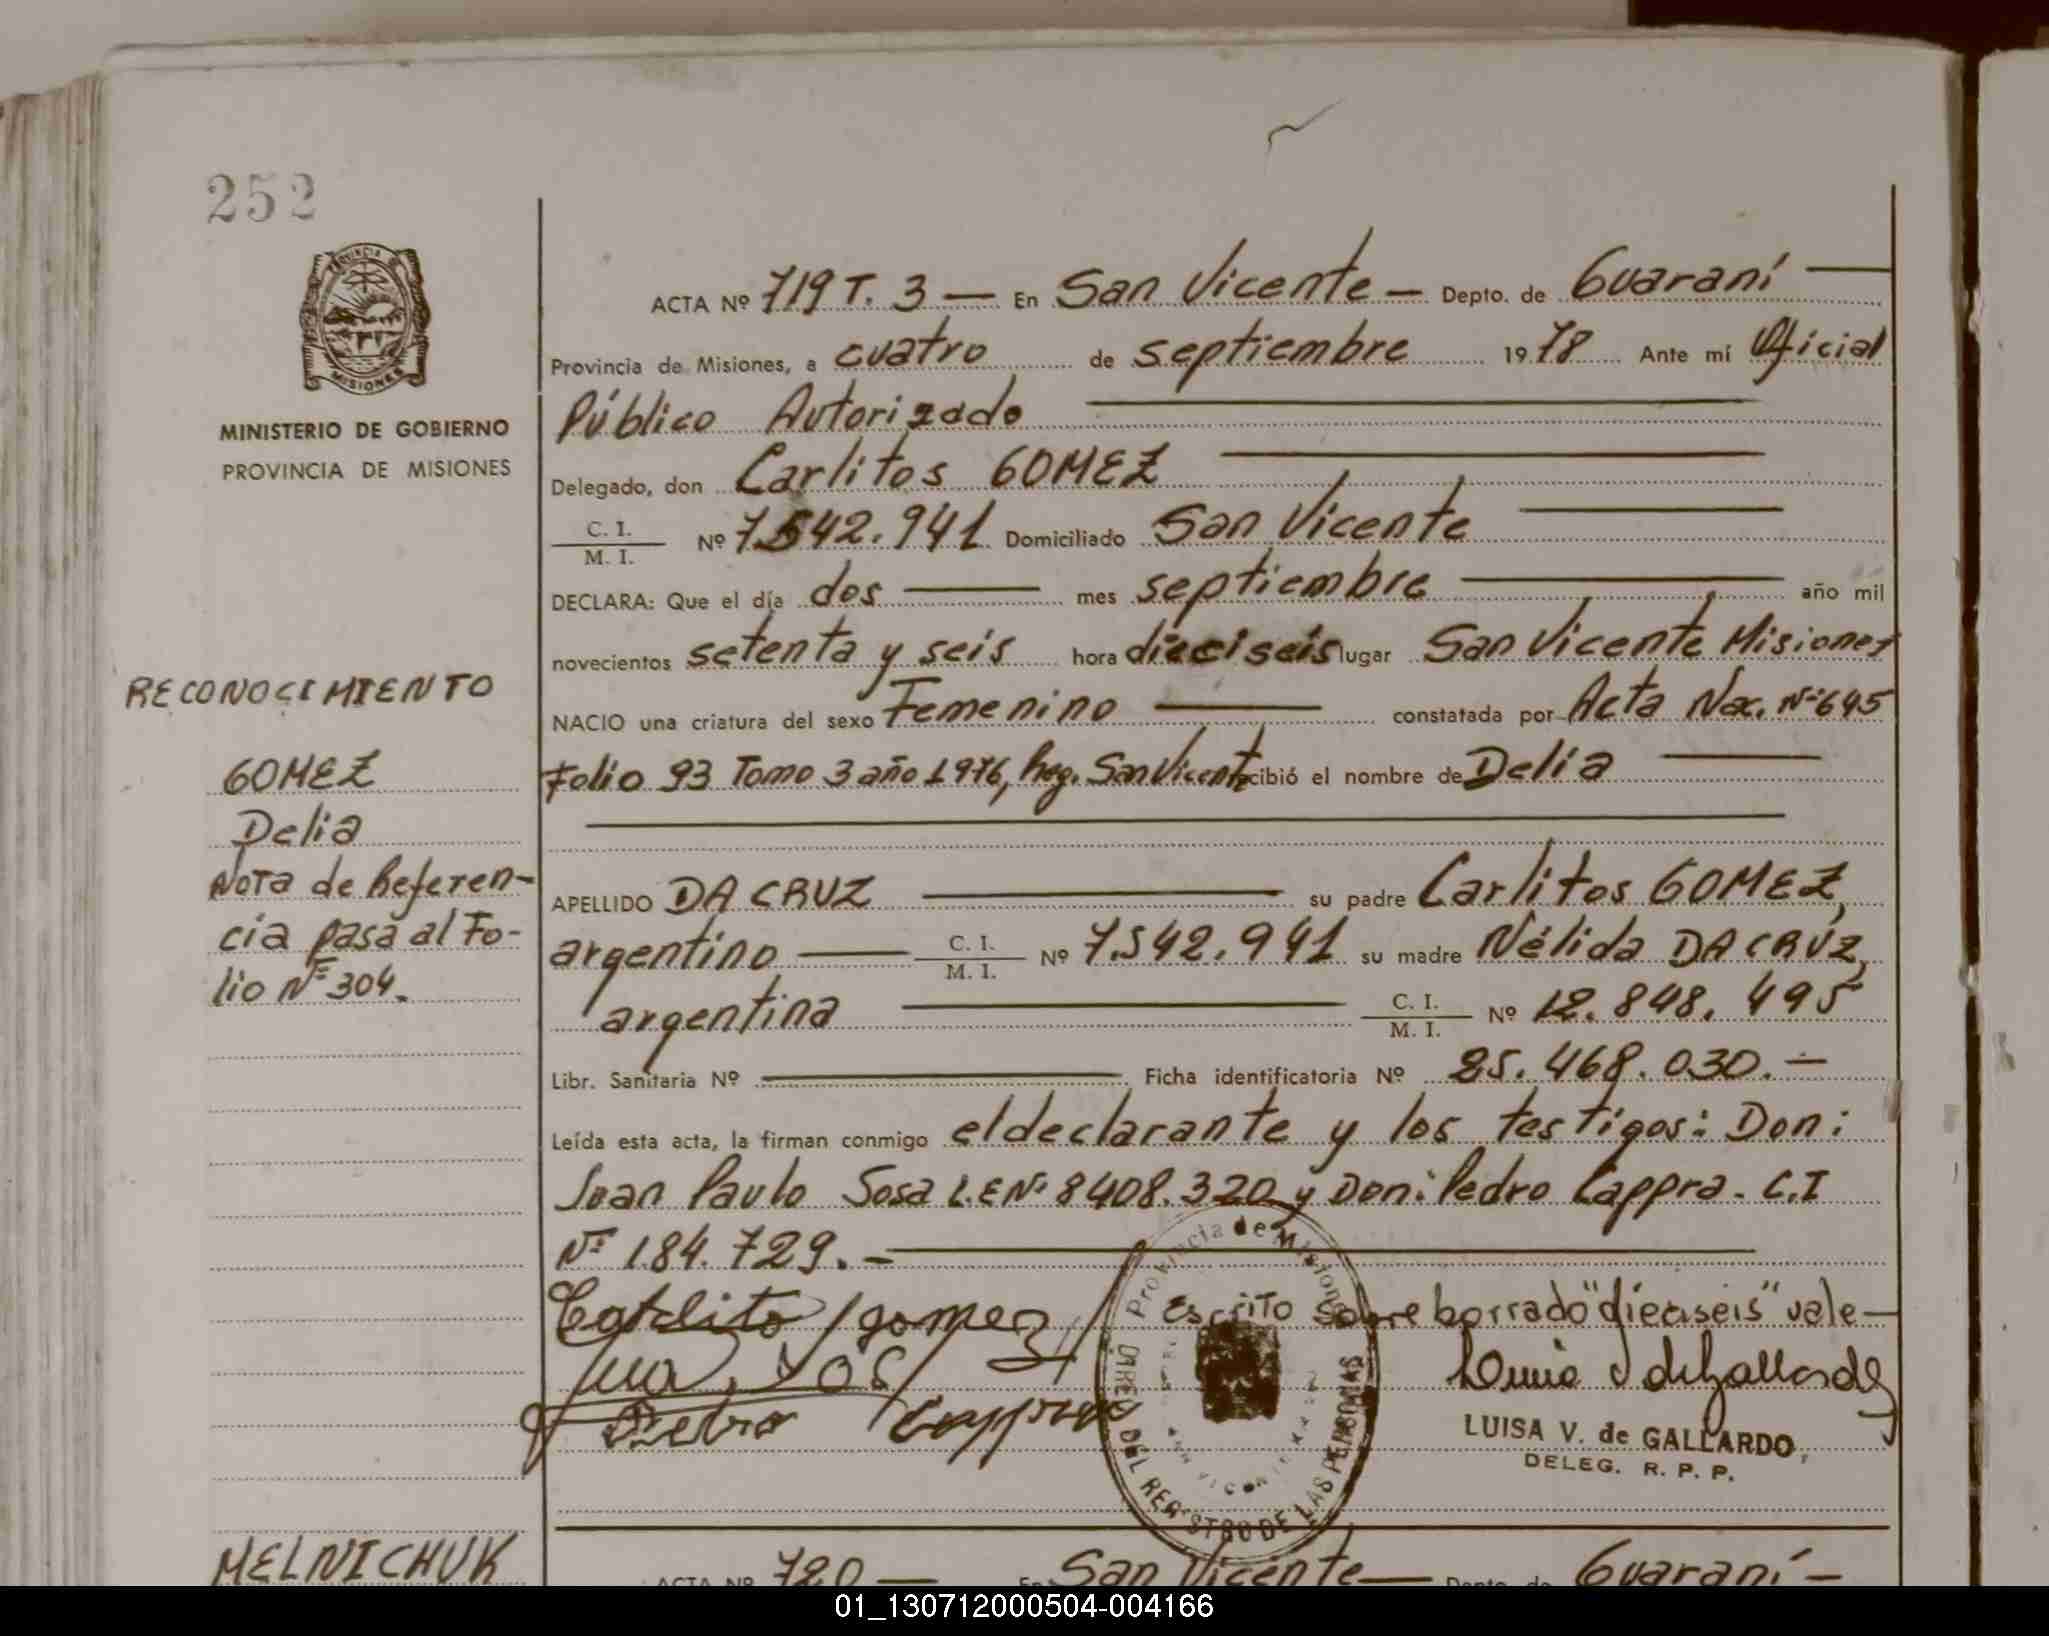 252
PROVINCIA DE
MISIONES
MINISTERIO DE GOBIERNO
PROVINCIA DE MISIONES
ACTA Nº 719 T. 3 — En San Vicente — Depto. de Guaraní —
Provincia de Misiones, a cuatro de septiembre 1978 Ante mí Oficial
Público Autorizado
Delegado, don Carlitos GOMEZ
C. I.
M. I.
Nº 7.542.941 Domiciliado San Vicente
DECLARA: Que el día dos — mes septiembre — año mil
novecientos setenta y seis hora dieciseis lugar San Vicente Misiones
RECONOCIMIENTO
NACIO una criatura del sexo Femenino — constatada por Acta Nac. Nº 645
GOMEZ
Folio 93 Tomo 3 año 1976, Reg. San Vicente cibió el nombre de Delia
Delia
Nota de Referen-
cia pasa al Fo-
lio Nº 304.
APELLIDO DA CRUZ — su padre Carlitos GOMEZ,
argentino — C. I.
M. I.
Nº 7.542.941 su madre Nélida DA CRUZ,
argentina — C. I.
M. I.
Nº 12.848.495
Libr. Sanitaria Nº — Ficha identificatoria Nº 25.468.030.—
Leída esta acta, la firman conmigo el declarante y los testigos: Don:
Juan Paulo Sosa L.E Nº 8408.320 y Don: Pedro Cappra. C.I
Nº 184.729.—
Escrito sobre borrado "dieciseis" vale—
gomez
Pedro
Provincia de Misiones
DIREC DEL REGISTRO DE LAS PERSONAS
LUISA V. de GALLARDO,
DELEG. R. P. P.
MELNICHUK
ACTA Nº 720 — En San Vicente — Depto. de Guaraní —
01_130712000504-004166